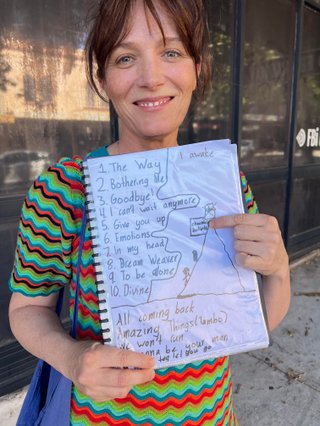 1. The Way
I awake
2. Bothering Me
3. Goodbye
4. I can't wait anymore
5. Give you up
6. Emotions
7. In my head
8. Dream Weaver
9. To be alone
10. Divine
All coming back
Amazing Things (Jambo)
We won't run
wanna be your man
let you go
FBi